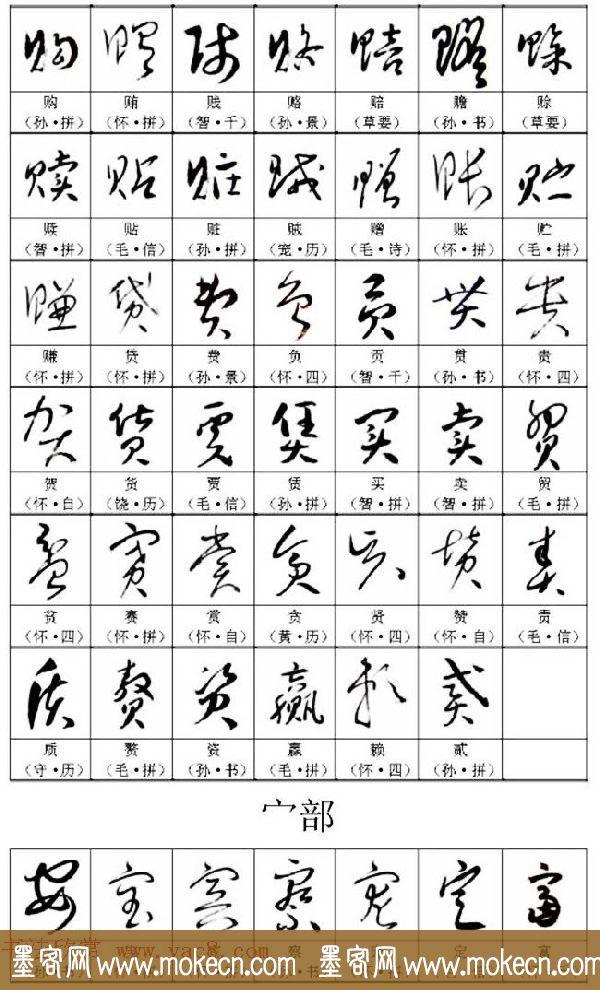 购 贿 贱 赂 赔 赡 赊
（孙·拼） （怀·拼） （智·千） （孙·景） （草要） （孙·书） （草要）
赎 贴 赃 贼 赠 账 贮
（智·拼） （毛·信） （孙·拼） （宠·历） （毛·诗） （怀·拼） （毛·拼）
赚 贷 费 负 贡 贯 贵
（怀·拼） （怀·拼） （孙·景） （怀·四） （智·千） （孙·书） （怀·四）
贺 货 贾 赁 买 卖 贸
（怀·自） （饶·历） （毛·信） （孙·拼） （智·拼） （智·拼） （毛·拼）
贫 赛 赏 贪 贤 赞 责
（怀·四） （怀·拼） （怀·自） （黄·历） （怀·四） （怀·自） （毛·信）
质 赘 资 赢 赖 贰
（守·历） （毛·拼） （孙·书） （毛·拼） （怀·四） （孙·拼）
宀部
墨客网 www.mokecn.com 墨客网 www.mokecn.com 墨客网